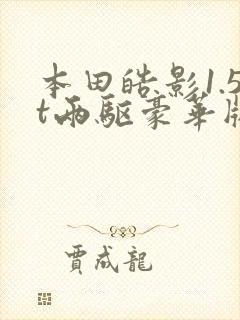 本田皓影1.5
t两驱豪华版
贾成龍